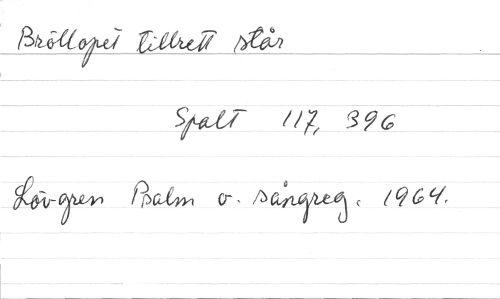 Bröllopet tillrett står
Spalt 117, 396
Lövgren Psalm o. sångreg. 1964.